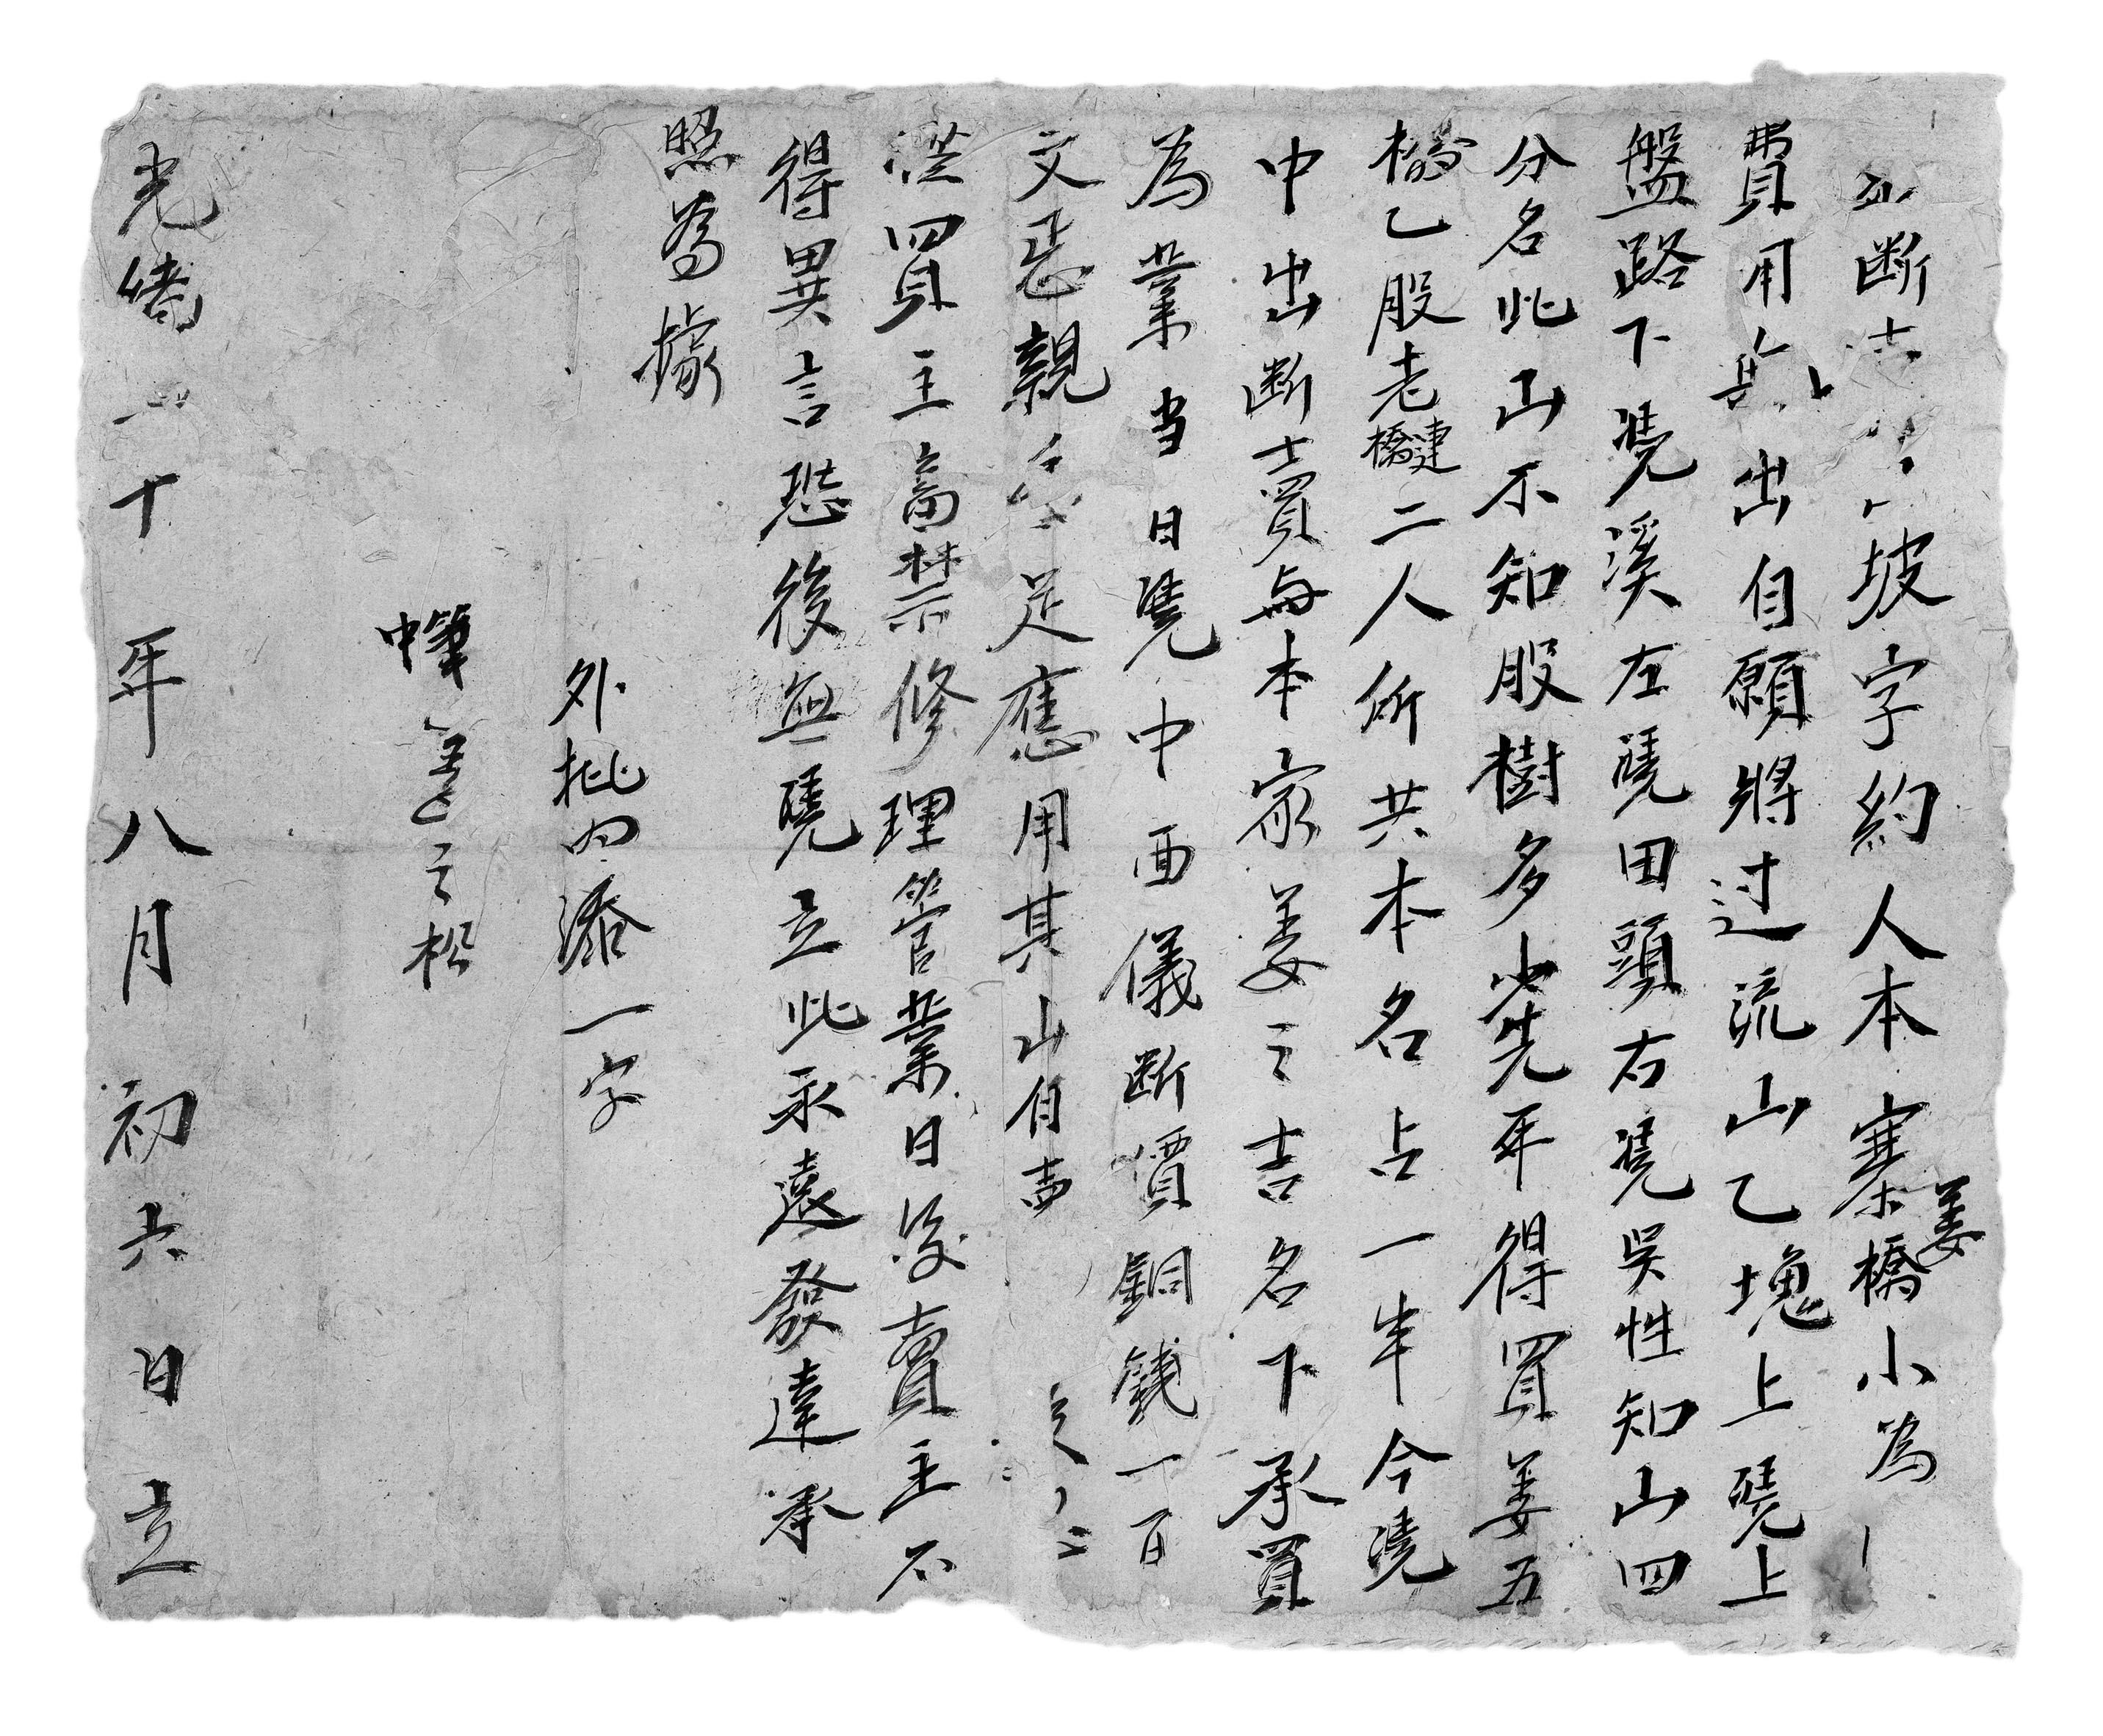 立断賣坡字約人本寨姜橋小為
費用無出自願將过流山乙塊上凴上
盤路下凴溪左凴田頭右凴吳性知山四
分名此山不知股樹多少先年得買姜五
橋乙股老連橋二人所共本名占一半今凴
中出断賣与本家姜之吉名下承買
為業当日凴中面儀断價銅錢一百
文恁親手足應用其山自賣之
從買主畜禁修理管業日後賣主不
得異言恐後無凴立此永遠發達承
照為據
外批內添一字
中筆姜之松
光緒二十年八月初六日立